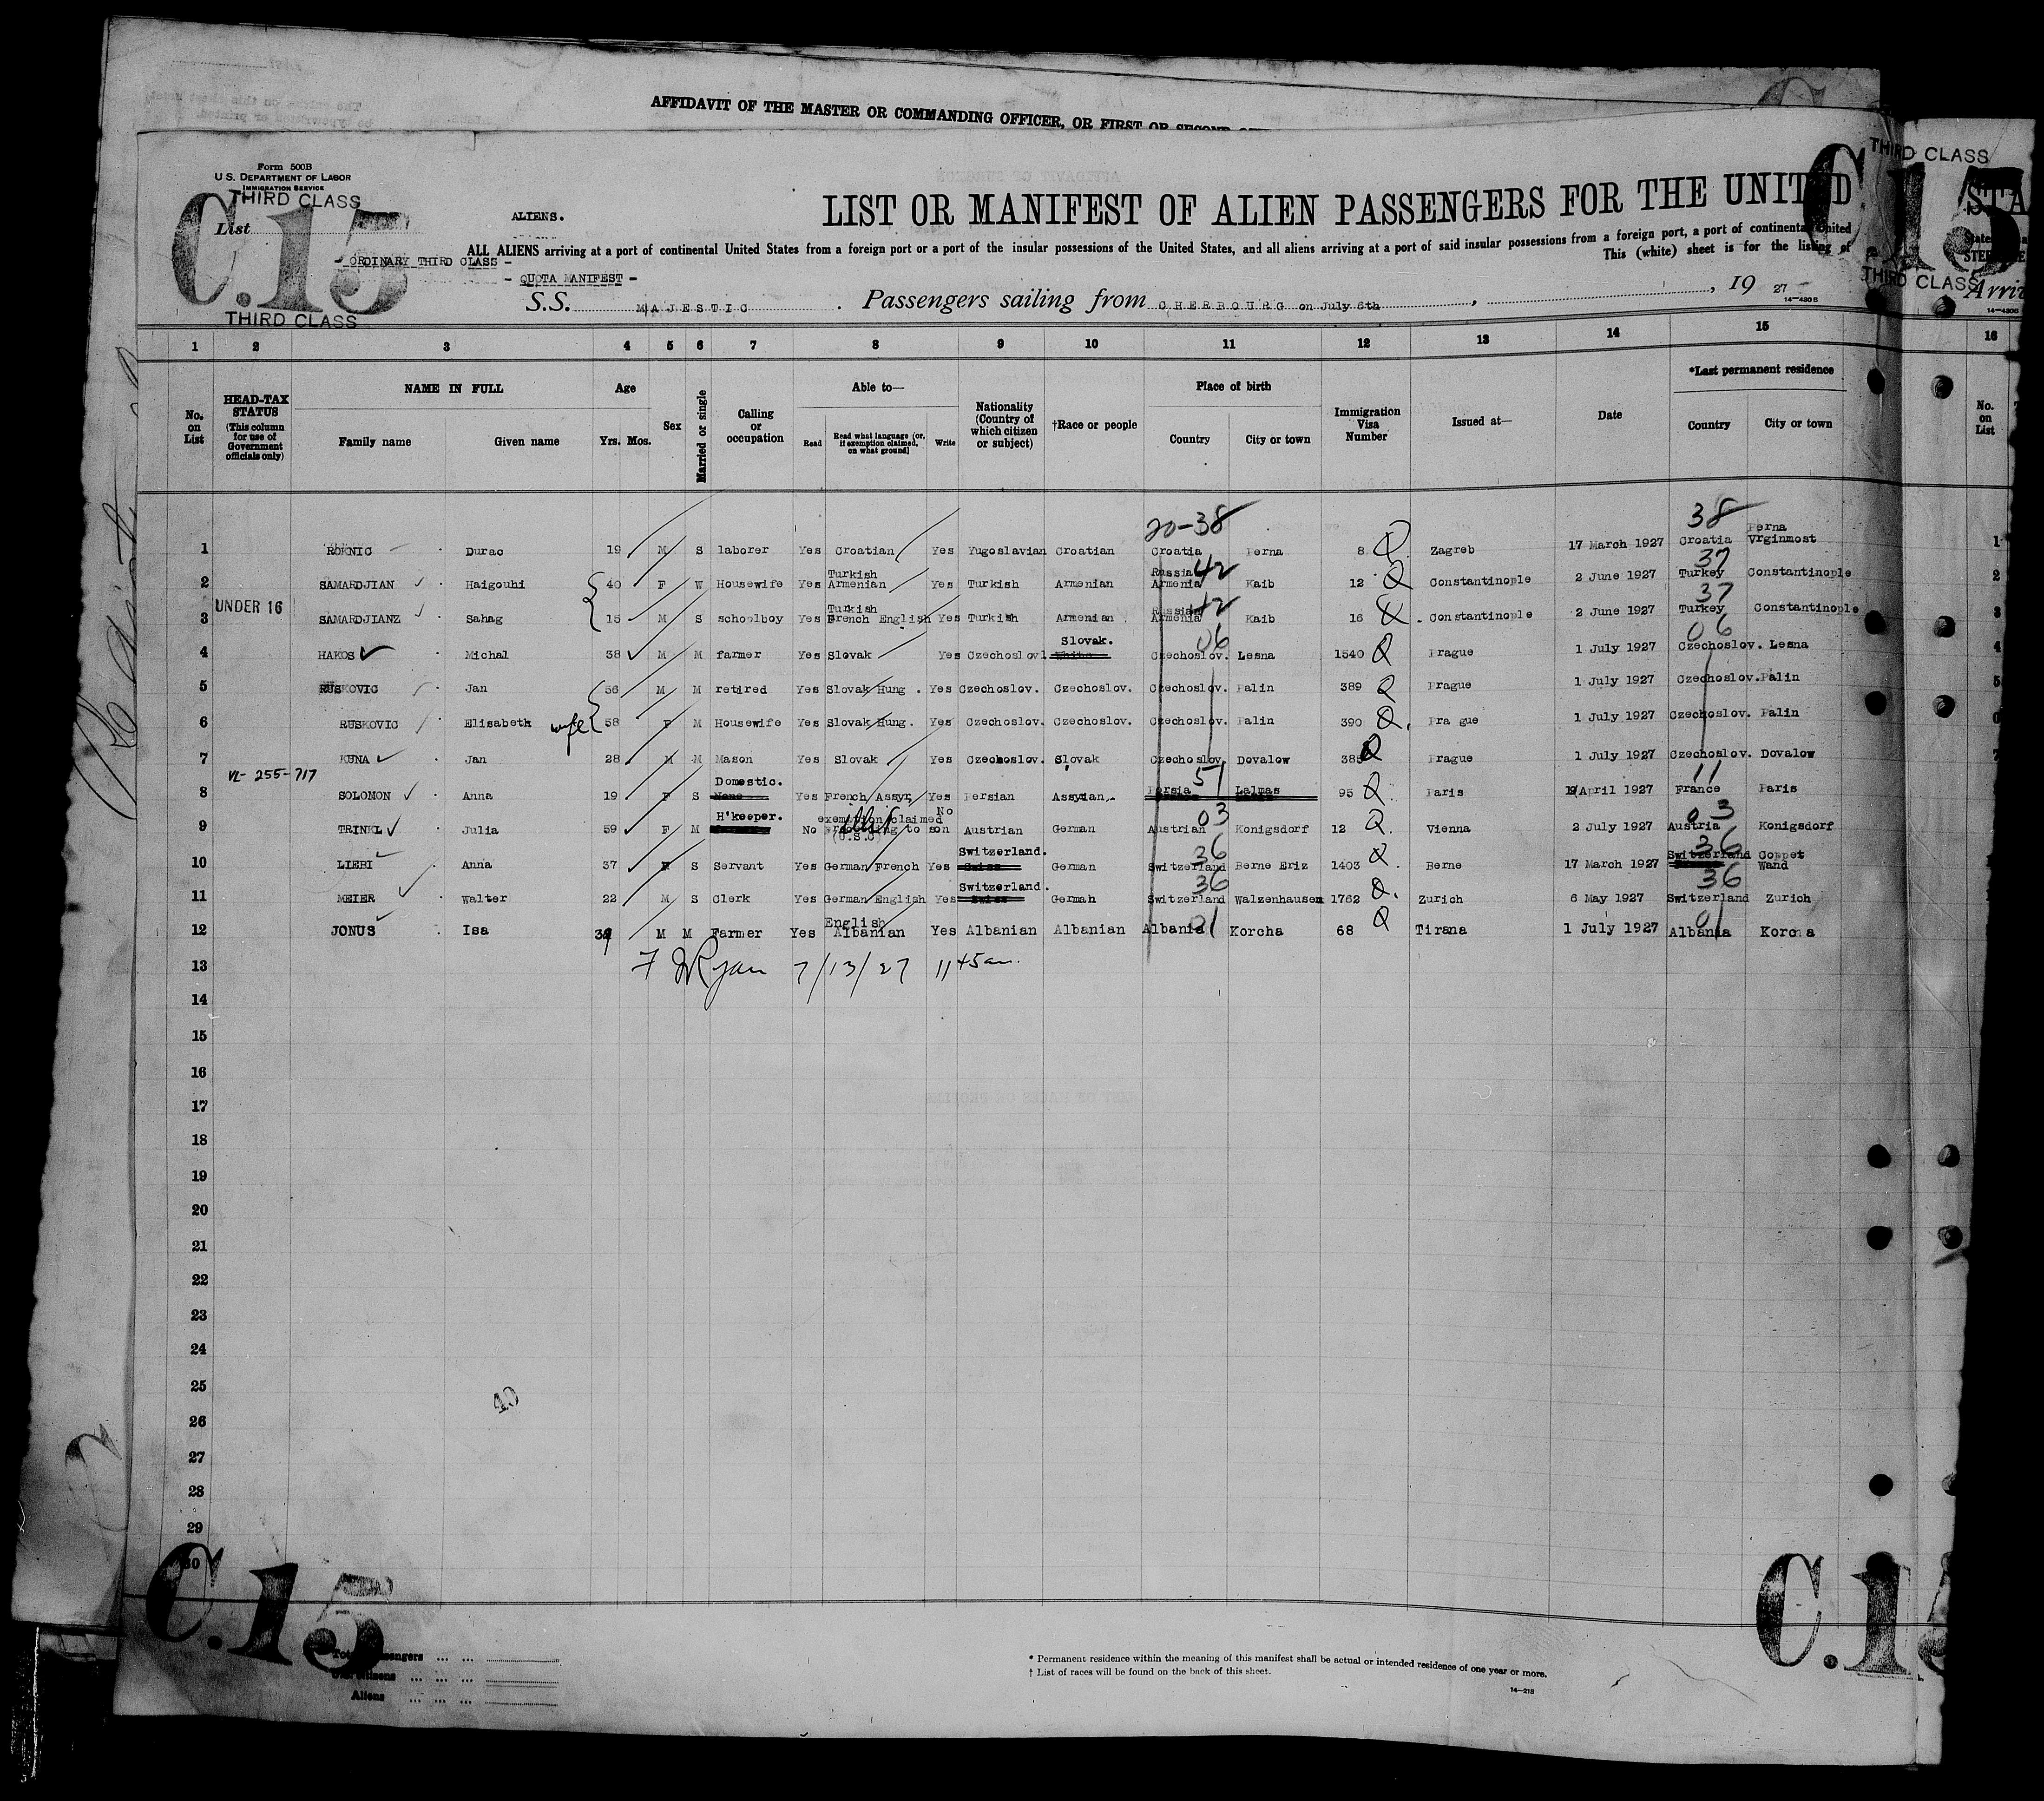 AFFIDAVIT OF THE MASTER OR COMMANDING OFFICER, OR FIRST OR SECOND
Form 500B
U. S. DEPARTMENT OF LABOR
IMMIGRATION SERVICE
THIRD CLASS
C.15
List
THIRD CLASS
ALIENS.
ORDINARY THIRD CLASS -
- QUOTA MANIFEST -
LIST OR MANIFEST OF ALIEN PASSENGERS FOR THE UNITED
THIRD CLASS
C.15
THIRD CLASS
STA
ALL ALIENS arriving at a port of continental United States from a foreign port or a port of the insular possessions of the United States, and all aliens arriving at a port of said insular possessions from a foreign port, a port of continental United
This (white) sheet is for the listing of
S.S. MAJESTIC. Passengers sailing from CHERBOURG on July 6th, , 19 27
14-4206
Arriv
14-4206
1 2 3 4 5 6 7 8 9 10 11 12 13 14 15 16
No. on List
HEAD-TAX STATUS (This column for use of Government officials only)
NAME IN FULL
Family name Given name
Age
Yrs. Mos.
Sex
Married or single
Calling or occupation
Able to—
Read Read what language (or, if exemption claimed, on what ground) Write
Nationality (Country of which citizen or subject)
†Race or people
Place of birth
Country City or town
Immigration Visa Number
Issued at—
Date
*Last permanent residence
Country City or town
No. on List
20-38 38 Perna
1 ROKNIC Durac 19 M S laborer Yes Croatian Yes Yugoslavian Croatian Croatia Perna 8 Q Zagreb 17 March 1927 Croatia Vrginmost 1
Turkish Russia 42 37
2 SAMARDJIAN Haigouhi 40 F W Housewife Yes Armenian Yes Turkish Armenian Armenia Kaib 12 Q Constantinople 2 June 1927 Turkey Constantinople 2
UNDER 16 Turkish Russian 42 37
3 SAMARDJIANZ Sahag 15 M S schoolboy Yes French English Yes Turkish Armenian Armenia Kaib 16 Q Constantinople 2 June 1927 Turkey Constantinople 3
Slovak. 06 06
4 HAKOS Michal 38 M M farmer Yes Slovak Yes Czechoslovl White Czechoslov. Lesna 1540 Q Prague 1 July 1927 Czechoslov. Lesna 4
5 RUSKOVIC Jan 56 M M retired Yes Slovak Hung. Yes Czechoslov. Czechoslov. Czechoslov. Palin 389 Q Prague 1 July 1927 Czechoslov. Palin 5
6 RUSKOVIC Elisabeth wife 58 F M Housewife Yes Slovak Hung. Yes Czechoslov. Czechoslov. Czechoslov. Palin 390 Q. Pra gue 1 July 1927 Czechoslov. Palin 6
7 KUNA Jan 28 M M Mason Yes Slovak Yes Czechoslov. Slovak Czechoslov. Dovalow 385 Q Prague 1 July 1927 Czechoslov. Dovalow 7
VL-255-717 Domestic. 51 11
8 SOLOMON Anna 19 F S None Yes French Assyr. Yes Persian Assyrian Persia Lalmas 95 Q Paris April 1927 France Paris 8
H'keeper. exemption claimed No 03 03
9 TRINKL Julia 59 F M No to son Austrian German Austrian Konigsdorf 12 Q. Vienna 2 July 1927 Austria Konigsdorf 9
(U.S.C)
Switzerland. 36 36
10 LIEBI Anna 37 F S Servant Yes German French Yes Swiss German Switzerland Berne Eriz 1403 Q Berne 17 March 1927 Switzerland Coppet Wand 10
Switzerland. 36 36
11 MEIER Walter 22 M S Clerk Yes German English Yes Swiss German Switzerland Walzenhausen 1762 Q. Zurich 6 May 1927 Switzerland Zurich 11
English 01 01
12 JONUS Isa 39 M M Farmer Yes Albanian Yes Albanian Albanian Albania Korcha 68 Q Tirana 1 July 1927 Albania Korcha 12
13 F W Ryan 7/13/27 11 45 am.
14
15
16
17
18
19
20
21
22
23
24
25
40
26
27
28
29
30
C.15
Total passengers
U.S. citizens
Aliens
* Permanent residence within the meaning of this manifest shall be actual or intended residence of one year or more.
† List of races will be found on the back of this sheet.
14-218
C.15